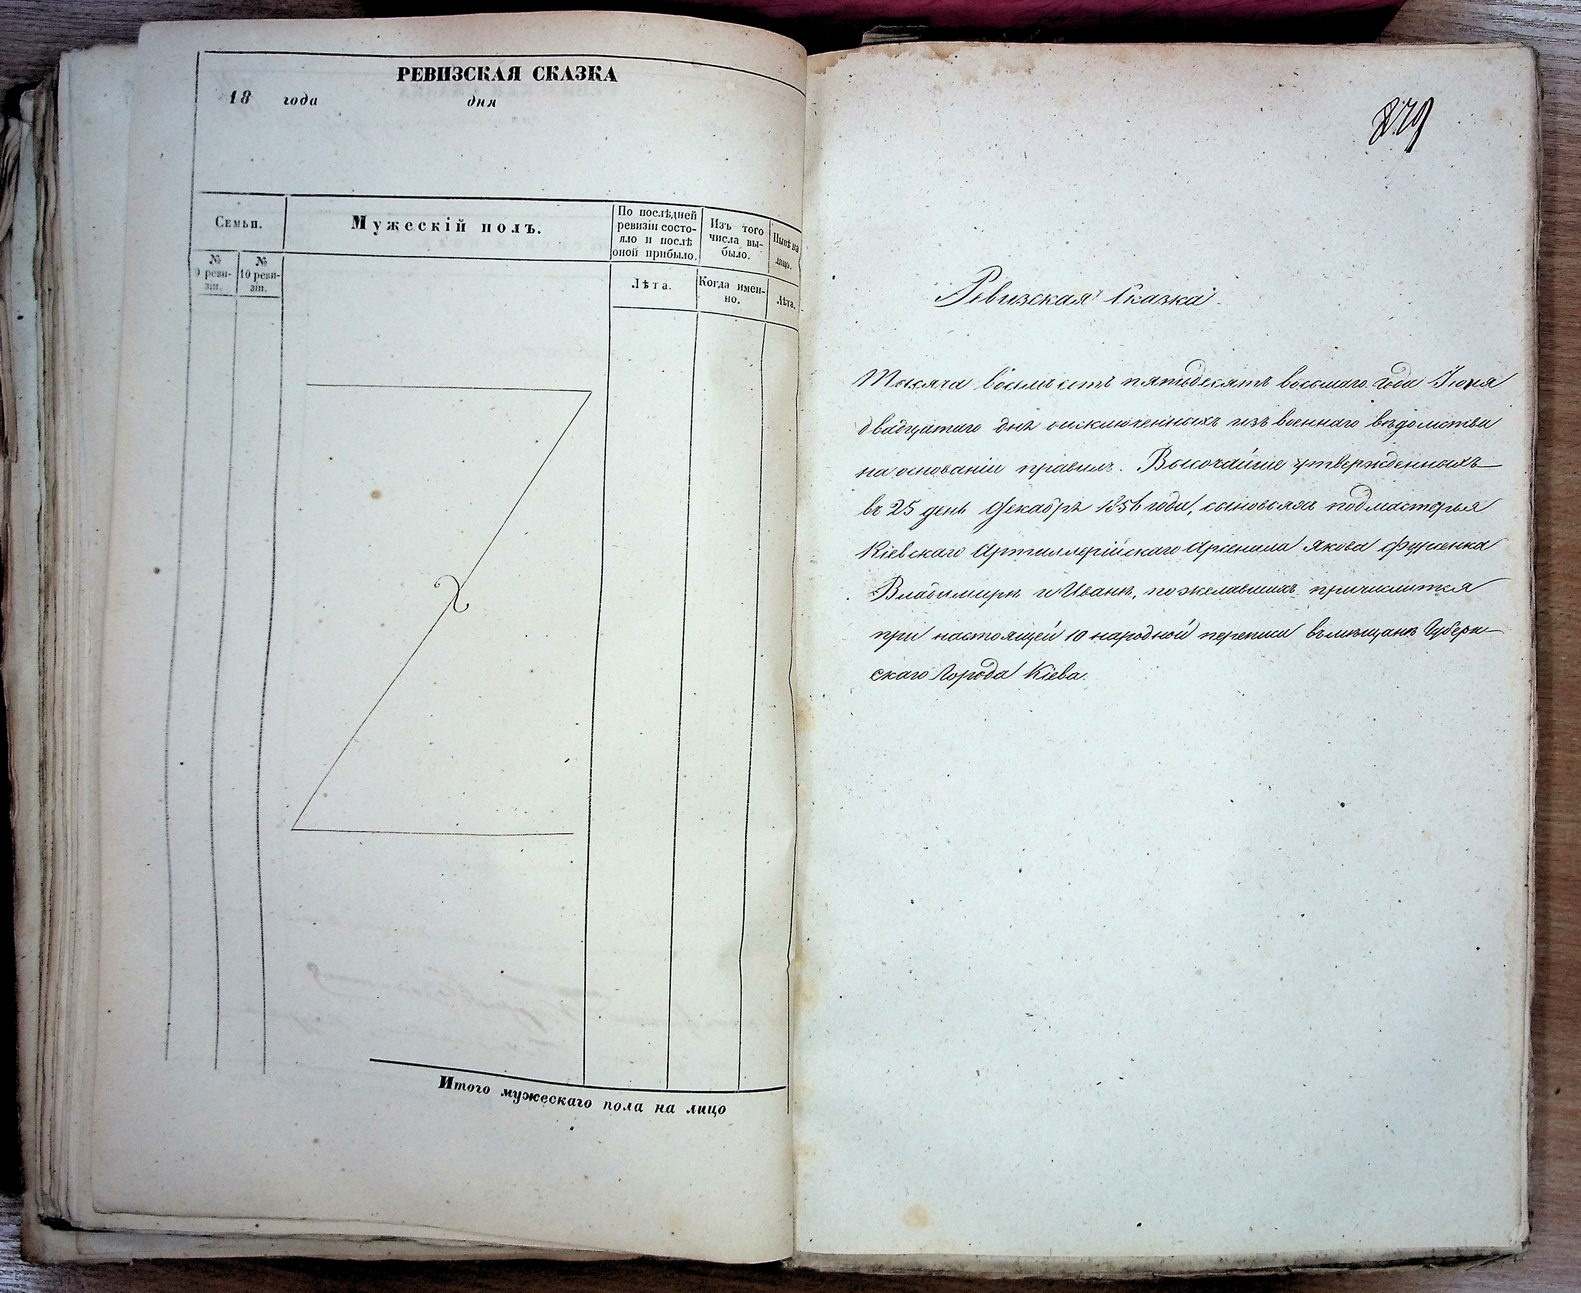 РЕВИЗСКАЯ СКАЗКА
18 года дня
Семьи.
Мужескій полъ.
По послѣдней ревизіи состояло и послѣ оной прибыло.
Изъ того числа выбыло.
Нынѣ на лицо.
№ 9 ревизіи.
№ 10 ревизіи.
Лѣта.
Когда именно.
Лѣта.
Итого мужескаго пола на лицо
879
Ревизская Сказка
Тысяча восемьсотъ пятьдесятъ восьмаго года Іюня
двадцатаго дня о исключенныхъ изъ военнаго вѣдомства
на основаніи правилъ. Высочайше утвержденныхъ
въ 25 день Декабря 1856 года, сыновьяхъ подмастерья
Кіевскаго Артиллерійскаго Арсенала Якова
Владимирѣ и Иванѣ, пожелавшихъ причислится
при настоящей 10 народной переписи въ мѣщане Губерн-
скаго Города Кіева.